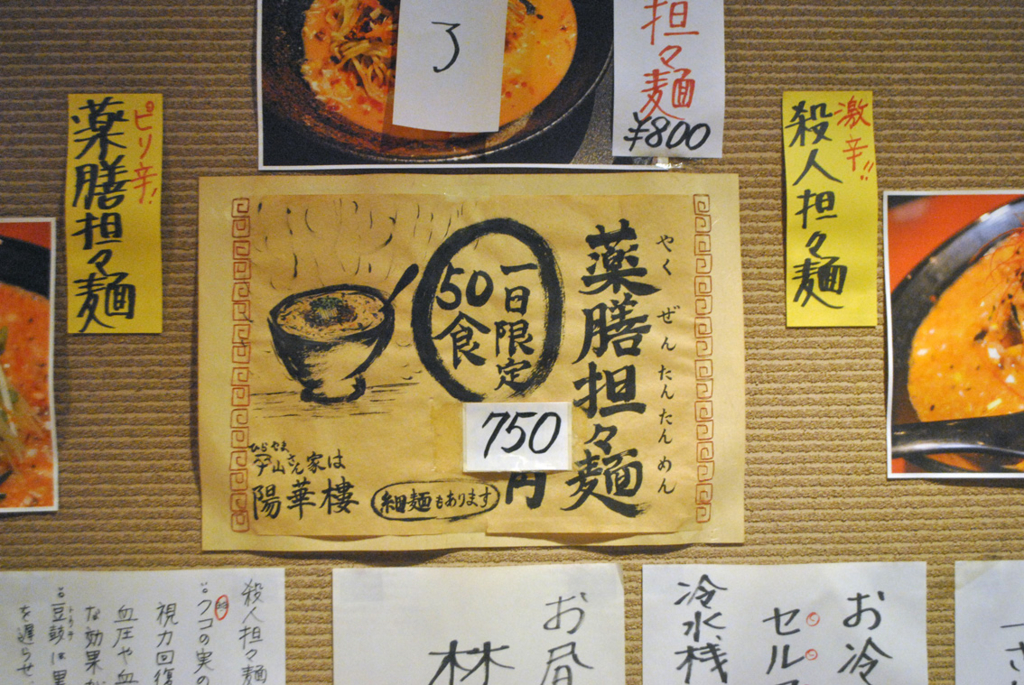 了
担々麺
¥800
ピリ辛!
薬膳担々麺
激辛!!
殺人担々麺
やくぜんたんたんめん
薬膳担々麺
一日限定
50食
750
円
ひらやま
平山さん家は
陽華樓
細麺もあります
殺人担々麺
クコの実の
視力回復
血圧や血
な効果が
豆鼓は黒
を遅らせ
お昼
林
お冷
セル
冷水、桟